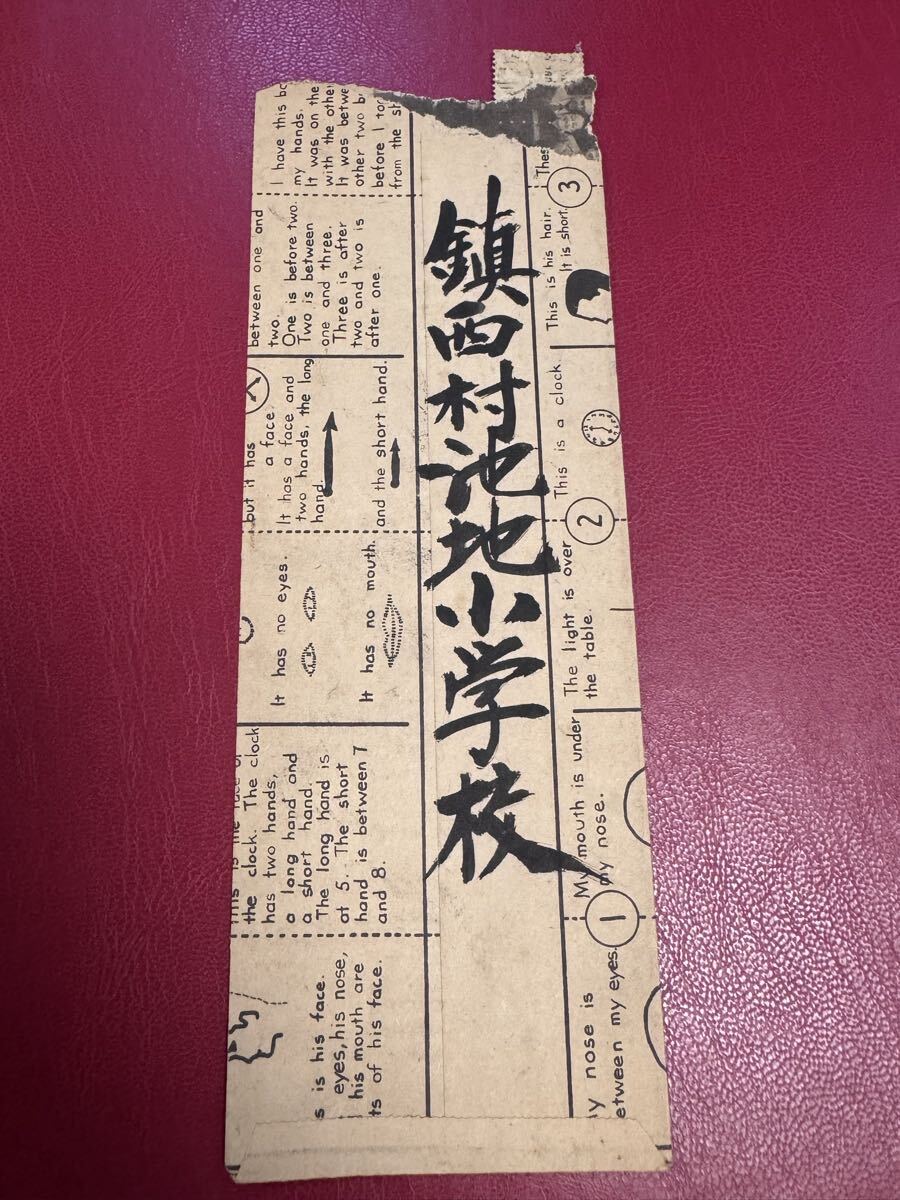 鎮西村池地小学校
I have this
my hands.
It was on the
with the other
It was
other two
before I
from the
between one and
two.
One is before two.
Two is between
one and three.
Three is after
two and two is
after one.
but it has
a face.
It has a face and
two hands, the long
hand
and the short hand.
It has no eyes.
It has no mouth.
the clock. The clock
has two hands,
a long hand and
a short hand.
The long hand is
at 5. The short
hand is between 7
and 8.
is his face.
eyes, his nose,
his mouth are
of his face.
3
This is his hair.
It is short.
This is a clock
2
The light is over
the table.
My mouth is under
my nose.
1
nose is
my eyes.